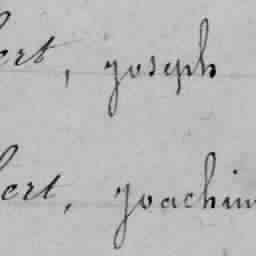 ert, joseph
bert, joachim